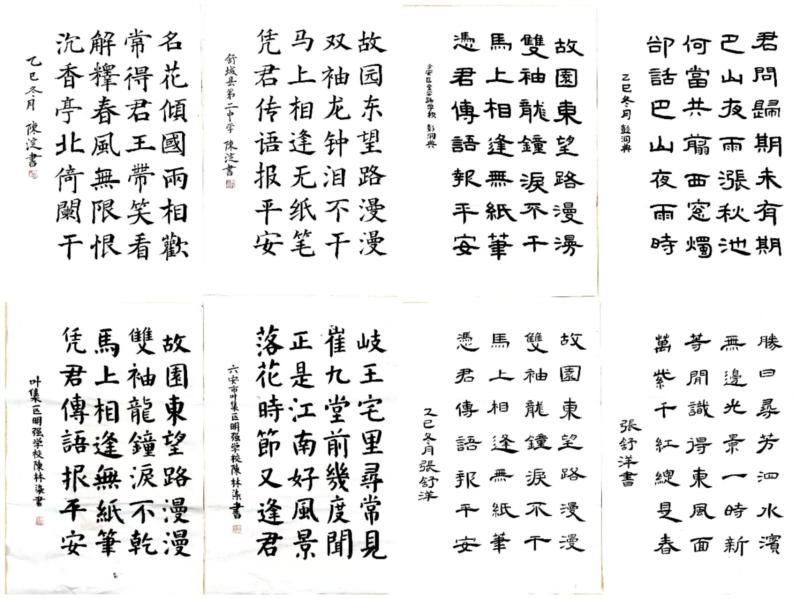 名花傾國兩相歡
常得君王帶笑看
解釋春風無限恨
沉香亭北倚闌干
乙巳冬月 陳淀書
故园东望路漫漫
双袖龙钟泪不干
马上相逢无纸笔
凭君传语报平安
舒城县第二中学 陳淀書
故園東望路漫漫
雙袖龍鐘淚不干
馬上相逢無紙筆
憑君傳語報平安
君問歸期未有期
巴山夜雨漲秋池
何當共翦西窓燭
郤話巴山夜雨時
乙巳冬月
故園東望路漫漫
雙袖龍鐘淚不乾
馬上相逢無紙筆
凭君傳語报平安
叶集区明强学校陳林溱書
岐王宅里尋常見
崔九堂前幾度聞
正是江南好風景
落花時節又逢君
六安市叶集区明强学校陳林溱書
故園東望路漫漫
雙袖龍鐘淚不干
馬上相逢無紙筆
憑君傳語報平安
乙巳冬月張舒洋
勝日尋芳泗水濱
無邊光景一時新
等閒識得東風面
萬紫千紅總是春
張舒洋書